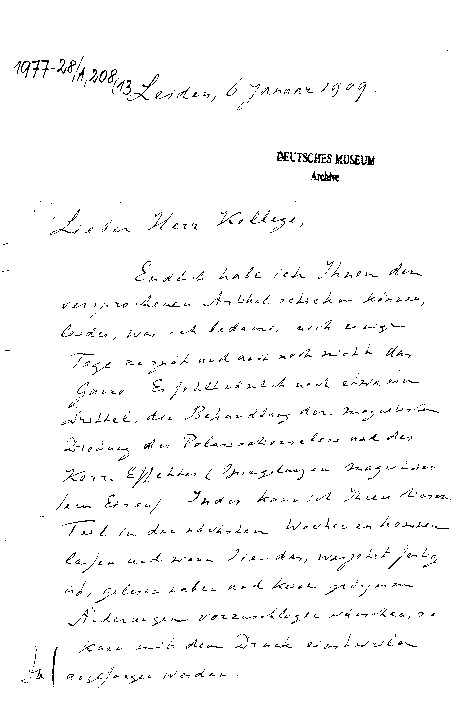 1977-28/A,208/13
Leiden, 6 Januar 1909.
DEUTSCHES MUSEUM
Archiv
Lieber Herr Kollege,
Endlich habe ich Ihnen den
versprochenen Artikel schicken können,
leider, was ich bedaure, noch einige
Tage zu spät und auch noch nicht das
Ganze. Es fehlt nämlich noch etwa ein
Drittel, die Behandlung der magnetischen
Drehung der Polarisationsebene und des
Kerr Effektes (Spiegelung an magnetisier
tem Eisen). Indes kann ich Ihnen diesen
Teil in den nächsten Wochen zukommen
lassen und wenn Sie das, was jetzt fertig
ist, gelesen haben und keine grösseren
Änderungen vorzuschlagen wünschen, so
kann mit dem Druck einstweilen
angefangen werden.